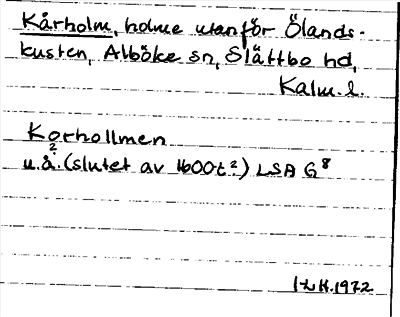 Kårholm, holme utanför Ölands-
kusten, Alböke sn, Slättbo hd,
Kalm. l.
Korhollmen
u.å. (slutet av 1600-t?) LSA G8
1972